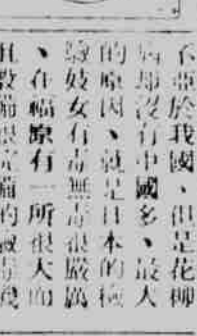 不亞於我國、但是花柳
病却沒有中國多、最大
的原因、就是日本的檢
驗妓女有毒無毒很嚴厲
、在福原有一所很大而
且設備很完備的